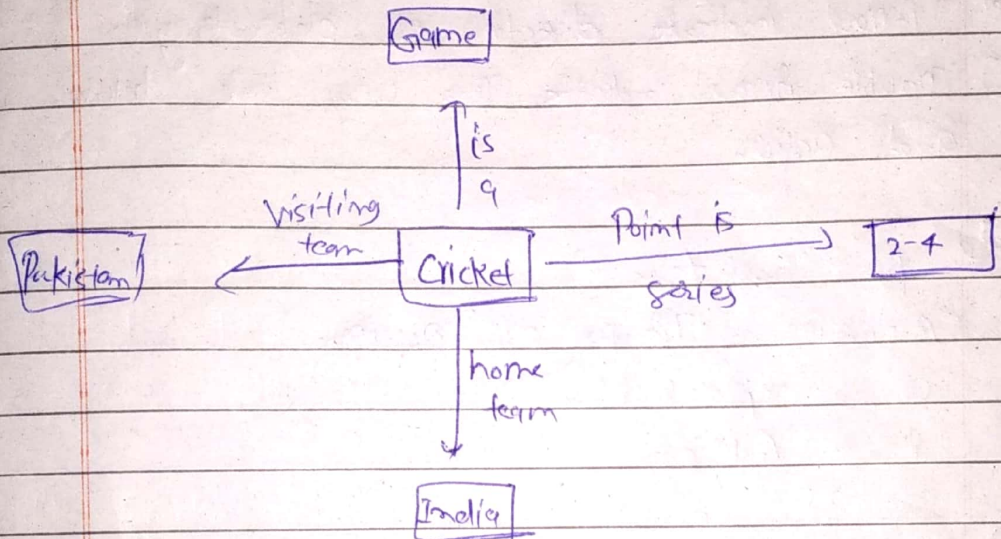 Game
is
a
Visiting
team
Pakistan
Cricket
Point is
series
2-4
home
team
India